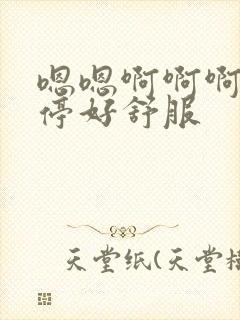 嗯嗯啊啊啊
停好舒服
天堂纸(天堂